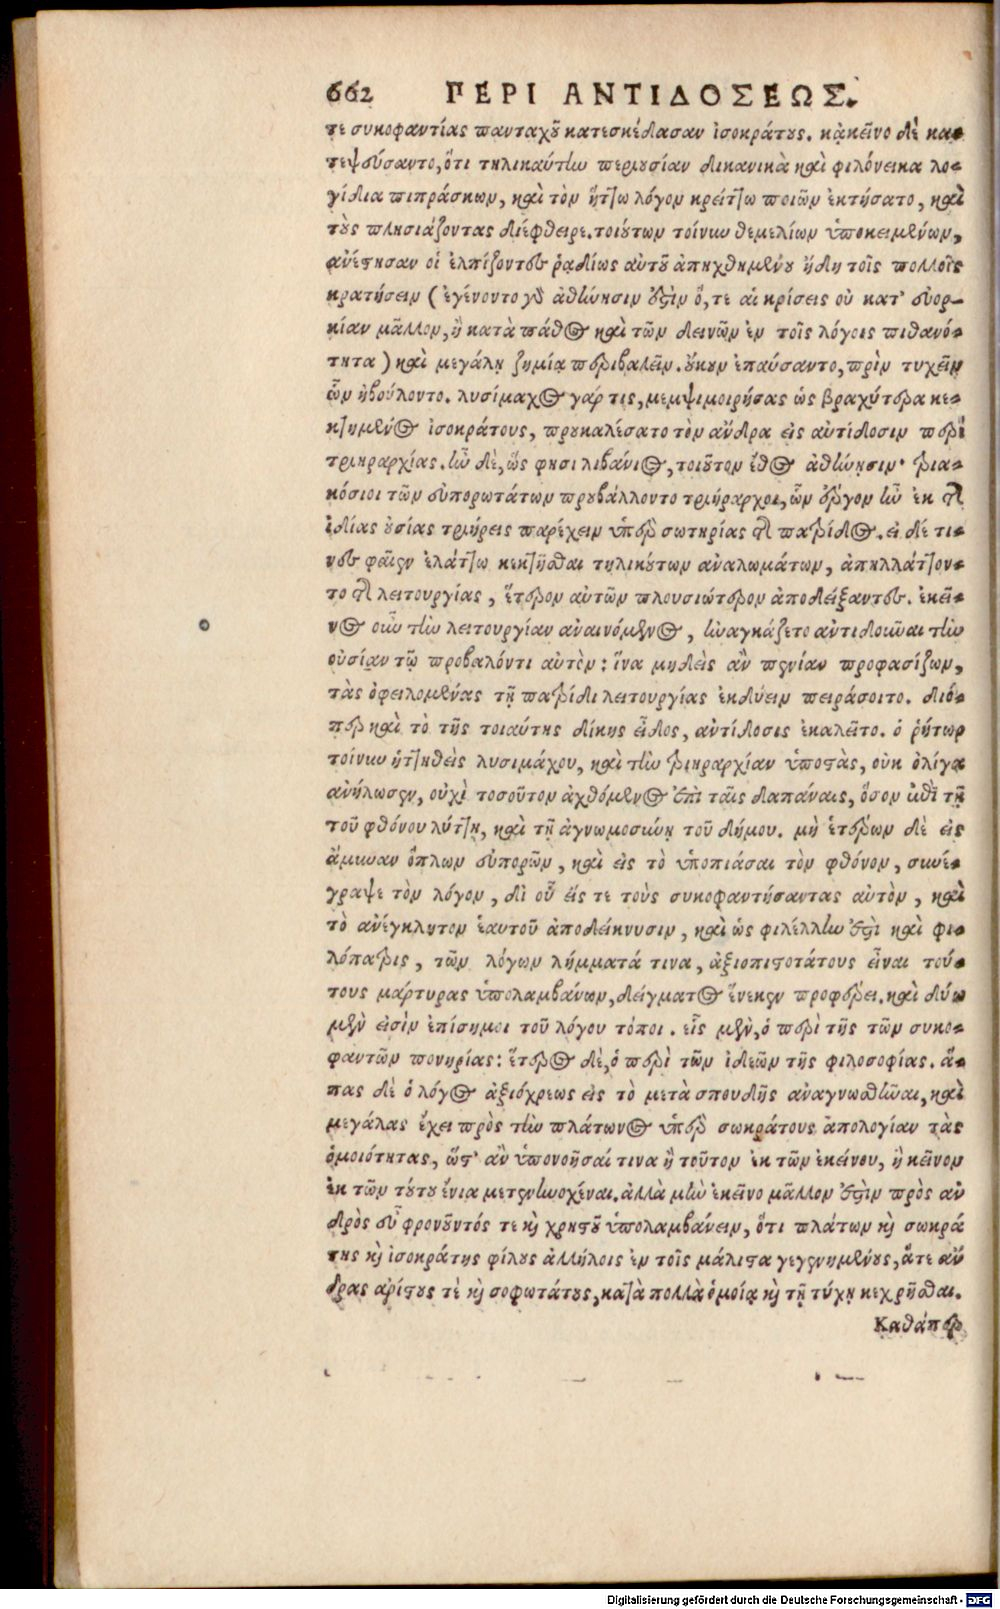 662 ΠΕΡΙ ΑΝΤΙΔΟΣΕΩΣ.
τε συκοφαντίας πανταχοῦ κατεσκέδασαν ἰσοκράτους. κᾀκεῖνο δὲ κα-
τεψεύσαντο, ὅτι τηλικαύτην περιουσίαν δικανικὰ καὶ φιλόνεικα λο-
γίδια πιπράσκων, καὶ τὸν ἥττω λόγον κρείττω ποιῶν ἐκτήσατο, καὶ
τοὺς πλησιάζοντας διέφθειρε. τοιούτων τοίνυν θεμελίων ὑποκειμένων,
ἀνέστησαν οἱ ἐλπίζοντες ῥᾳδίως αὐτοῦ ἀπηχθημένου ἤδη τοῖς πολλοῖς
κρατήσειν (ἐγένοντο γὰρ ἀθήνησιν ἔστιν ὅ, τε αἱ κρίσεις οὐ κατ' εὐορ-
κίαν μᾶλλον, ἢ κατὰ πάθος καὶ τῶν δεινῶν ἐν τοῖς λόγοις πιθανό-
τητα) καὶ μεγάλῃ ζημίᾳ περιβαλεῖν. οὔκουν ἐπαύσαντο, πρὶν τυχεῖν
ὧν ἠβούλοντο. λυσίμαχος γάρ τις, μεμψιμοιρήσας ὡς βραχύτερα κε-
κτημένος ἰσοκράτους, προυκαλέσατο τὸν ἄνδρα εἰς ἀντίδοσιν περὶ
τριηραρχίας. ἦν δὲ, ὥς φησι λιβάνιος, τοιοῦτον ἔθος ἀθήνησιν· τρια-
κόσιοι τῶν εὐπορωτάτων προυβάλλοντο τριήραρχοι, ὧν ἔργον ἦν ἐκ τῆς
ἰδίας οὐσίας τριήρεις παρέχειν ὑπὲρ σωτηρίας τῆς πατρίδος. εἰ δέ τι-
νες φαῖεν ἐλάττω κεκτῆσθαι τηλικούτων ἀναλωμάτων, ἀπηλλάττον-
το τῆς λειτουργίας, ἕτερον αὐτῶν πλουσιώτερον ἀποδείξαντες. ἐκεῖ-
νος οὖν τὴν λειτουργίαν ἀναινόμενος, ἠναγκάζετο ἀντιδοῦναι τὴν
οὐσίαν τῷ προβαλόντι αὐτόν: ἵνα μηδεὶς ἂν πενίαν προφασίζων,
τὰς ὀφειλομένας τῇ πατρίδι λειτουργίας ἐκδύειν πειράσοιτο. διό-
περ καὶ τὸ τῆς τοιαύτης δίκης εἶδος, ἀντίδοσις ἐκαλεῖτο. ὁ ῥήτωρ
τοίνυν ἡττηθεὶς λυσιμάχου, καὶ τὴν τριηραρχίαν ὑποστὰς, οὐκ ὀλίγα
ἀνήλωσεν, οὐχὶ τοσοῦτον ἀχθόμενος ἐπὶ ταῖς δαπάναις, ὅσον ἐπὶ τῇ
τοῦ φθόνου λύττῃ, καὶ τῇ ἀγνωμοσύνῃ τοῦ δήμου. μὴ ἑτέρων δὲ εἰς
ἄμυναν ὅπλων εὐπορῶν, καὶ εἰς τὸ ὑποπιάσαι τὸν φθόνον, συνέ-
γραψε τὸν λόγον, δι οὗ εἴς τε τοὺς συκοφαντήσαντας αὐτὸν, καὶ
τὸ ἀνέγκλητον ἑαυτοῦ ἀποδείκνυσιν, καὶ ὡς φιλέλλην ἐστὶ καὶ φι-
λόπατρις, τῶν λόγων λήμματά τινα, ἀξιοπιστοτάτους εἶναι τού-
τους μάρτυρας ὑπολαμβάνων, δείγματος ἕνεκεν προφέρει. καὶ δύω
μὲν εἰσὶν ἐπίσημοι τοῦ λόγου τόποι. εἷς μὲν, ὁ περὶ τῆς τῶν συκο-
φαντῶν πονηρίας: ἕτερος δὲ, ὁ περὶ τῶν ἰδεῶν τῆς φιλοσοφίας. ἅ-
πας δὲ ὁ λόγος ἀξιόχρεως εἰς τὸ μετὰ σπουδῆς ἀναγνωσθῆναι, καὶ
μεγάλας ἔχει πρὸς τὴν πλάτωνος ὑπὲρ σωκράτους ἀπολογίαν τὰς
ὁμοιότητας, ὥστ' ἂν ὑπονοῆσαί τινα ἢ τοῦτον ἐκ τῶν ἐκείνου, ἢ κεῖνον
ἐκ τῶν τούτου ἔνια μετενηνοχέναι, ἀλλὰ μὴν ἐκεῖνο μᾶλλον ἐστὶν πρὸς ἀν
δρὸς εὖ φρονοῦντός τε καὶ χρηστοῦ ὑπολαμβάνειν, ὅτι πλάτων καὶ σωκρά
της καὶ ἰσοκράτης φίλους ἀλλήλοις ἐν τοῖς μάλιστα γεγενημένους, ἅτε ἄν
δρας ἀρίστους τὲ καὶ σοφωτάτους, κατὰ πολλὰ ὁμοίᾳ καὶ τῇ τύχῃ κεχρῆσθαι.
Καθάπερ
Digitalisierung gefördert durch die Deutsche Forschungsgemeinschaft - DFG